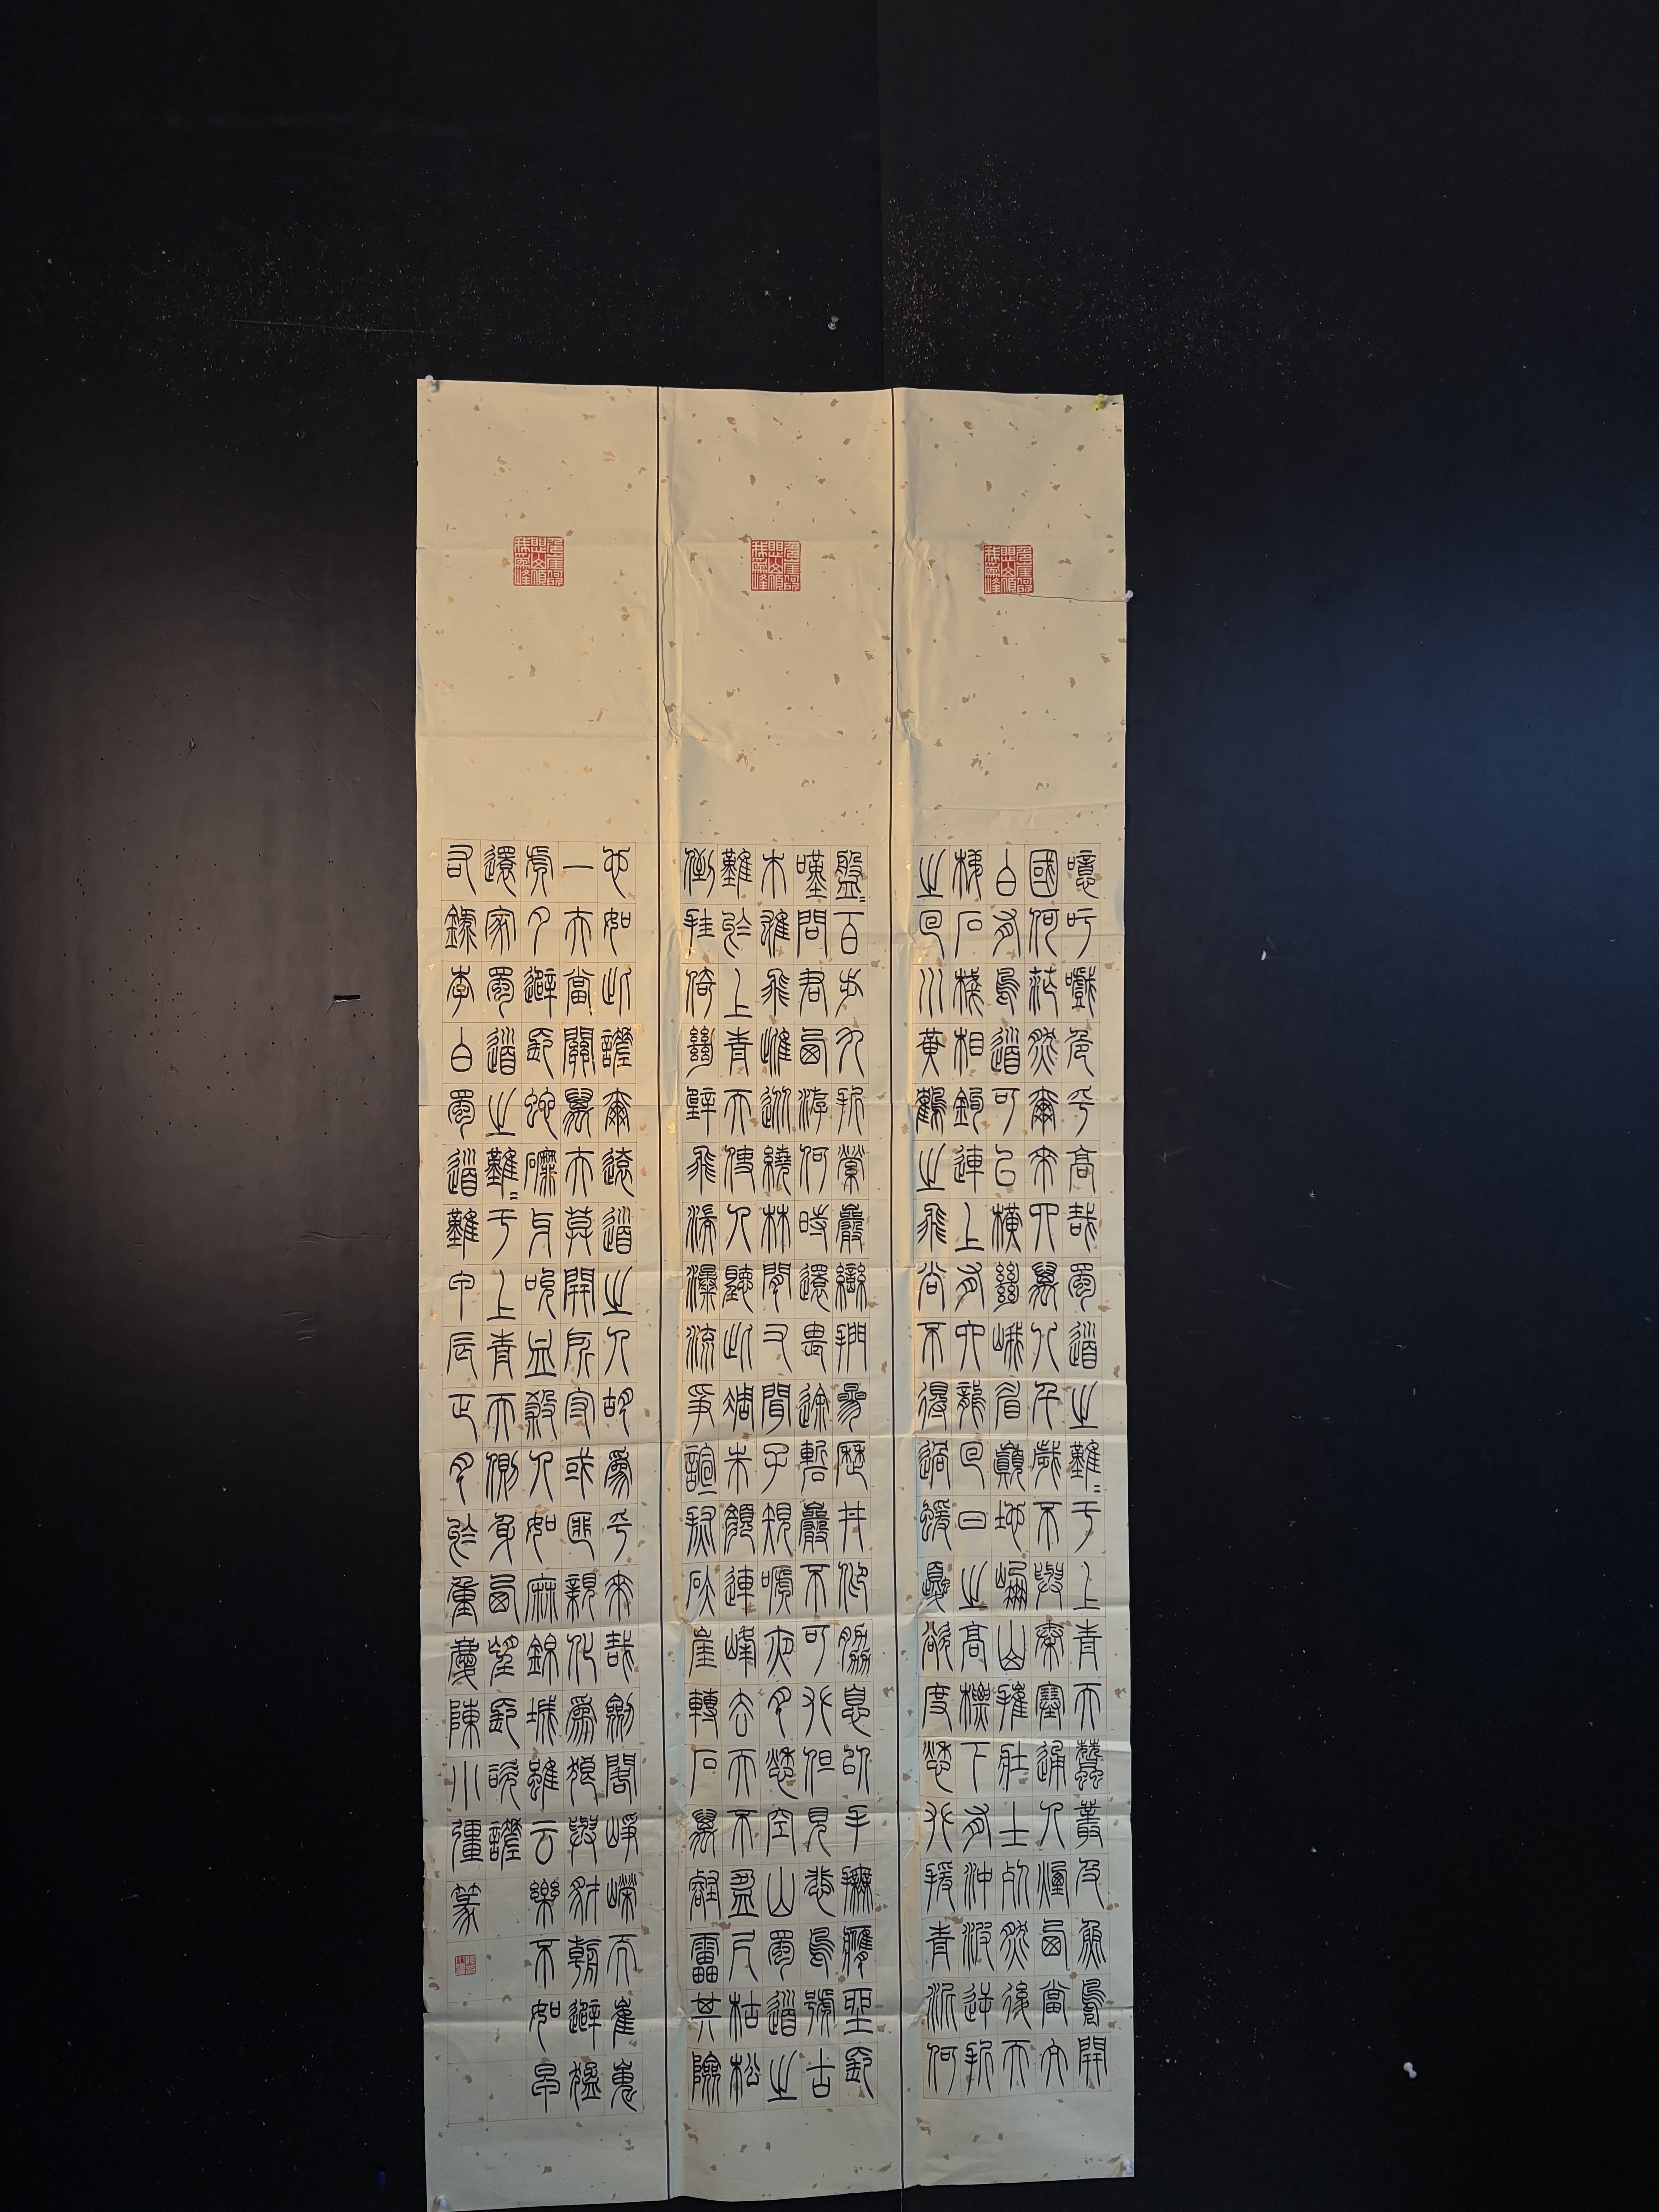 噫吁嚱危乎高哉蜀道之難〻于上青天蠶叢及魚鳧開
國何茫然爾來四萬八千歲不與秦塞通人煙西當太
白有鳥道可以橫絕峨眉巔地崩山摧壯士死然後天
梯石棧相鉤連上有六龍回日之高標下有沖波逆折
之回川黃鶴之飛尚不得過蝯夒欲度愁攀援青泥何
盤〻百步九折縈巖巒捫參歷井仰脅息以手撫膺坐長
嘆問君西游何時還畏途巉巖不可攀但見悲鳥號古
木雄飛雌從繞林間又聞子規啼夜月愁空山蜀道之
難於上青天使人聽此凋朱顏連峰去天不盈尺枯松
倒挂倚絕壁飛湍瀑流爭諠豗砯崖轉石萬壑雷其險
也如此嗟爾遠道之人胡為乎來哉劍閣崢嶸而崔嵬
一夫當關萬夫莫開所守或匪親化為狼與豺朝避猛
虎夕避長蛇磨牙吮血殺人如麻錦城雖云樂不如早
還家蜀道之難〻于上青天側身西望長咨嗟
右錄李白蜀道難甲辰正月於重慶陳小彊篆